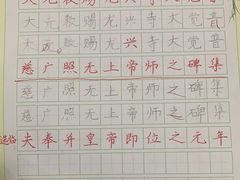 大元敕赐龙兴寺大觉普
大元敕赐龙兴寺大觉普
大元敕赐龙兴寺大觉普
慈广照无上帝师之碑集
慈广照无上帝师之碑集
慈广照无上帝师之碑集
选临 夫奉并皇帝即位之元年